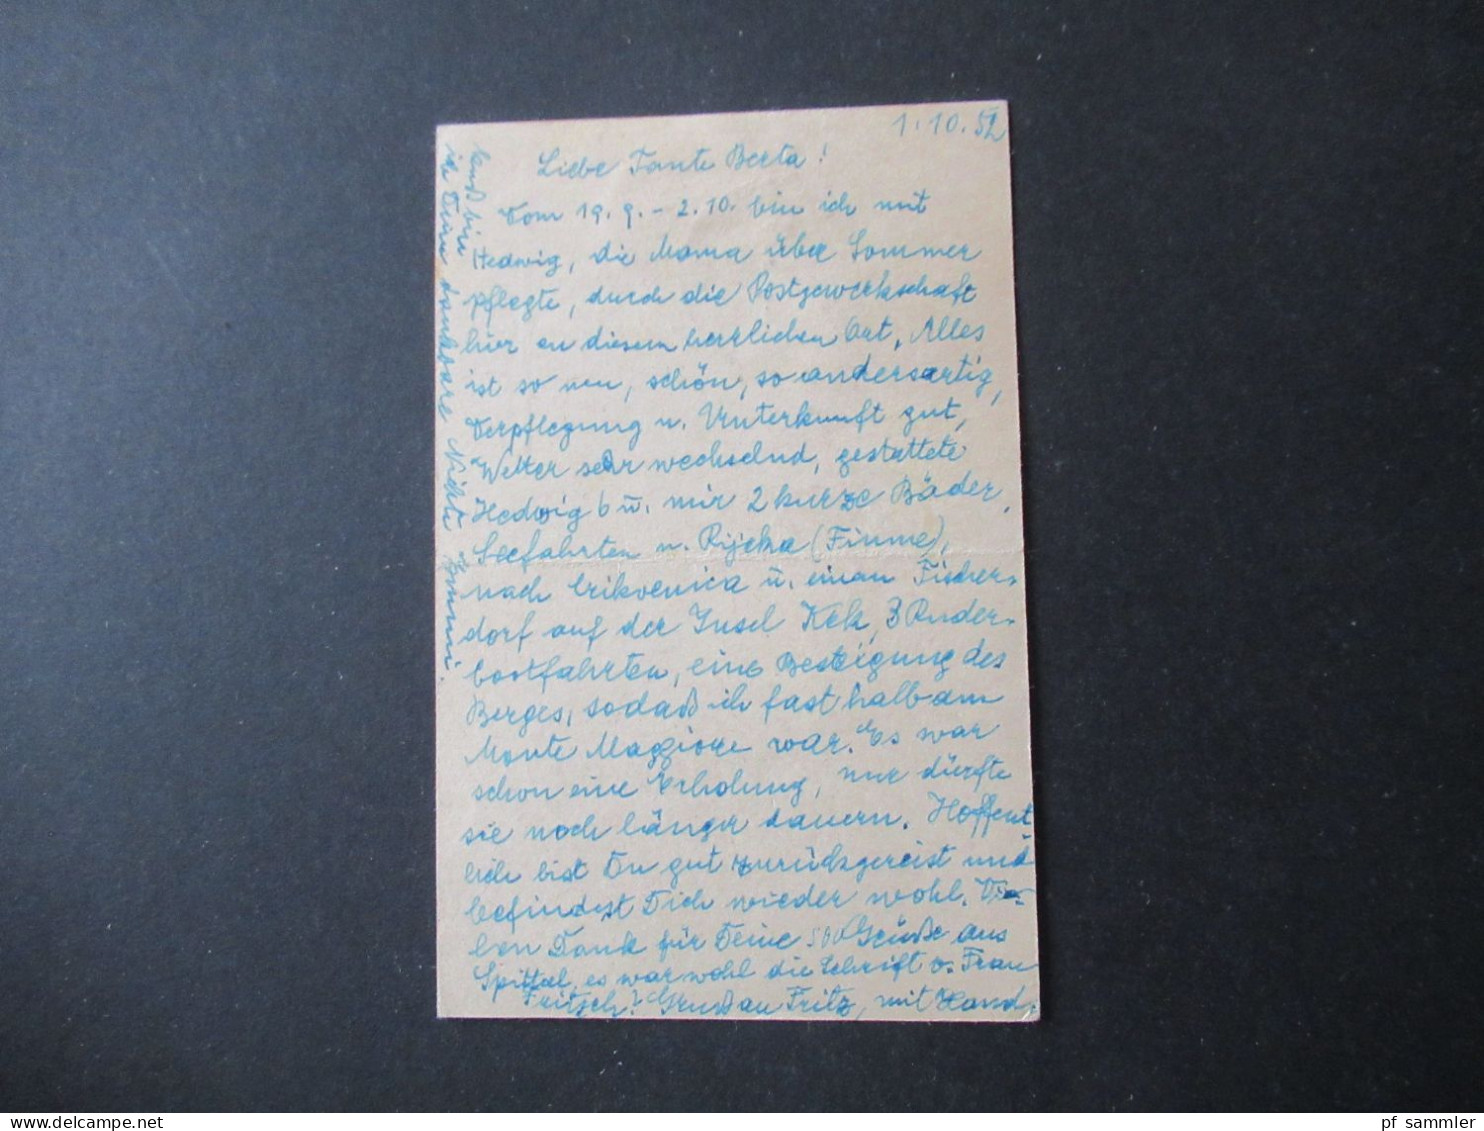 1.10.52
Liebe Tante Berta!
Vom 19.9.-2.10. bin ich mit
Hedwig, die Mama über Sommer
pflegte, durch die Postgewerkschaft
hier an diesem herrlichen Ort, Alles
ist so neu, schön, so andersartig,
Verpflegung u. Unterkunft gut,
Wetter sehr wechselnd, gestattete
Hedwig 6 u. mir 2 kurze Bäder,
Seefahrten n. Rijeka (Fiume),
nach Crikvenica u. einem Fischer-
dorf auf der Insel Krk, 3 Ruder-
bootfahrten, eine Besteigung des
Berges, sodaß ich fast halb am
Monte Maggiore war. Es war
schon eine Erholung, nur dürfte
sie noch länger dauern. Hoffent-
lich bist Du gut zurückgereist und
befindest Dich wieder wohl. Vie-
len Dank für Deine Grüße aus
Spittal, es war wohl die Schrift v. Frau
Fritsch? Gruß an Fritz, mit Hand-
kuß bin
ich Deine dankbare Nichte
delcampe.net
pf_sammler